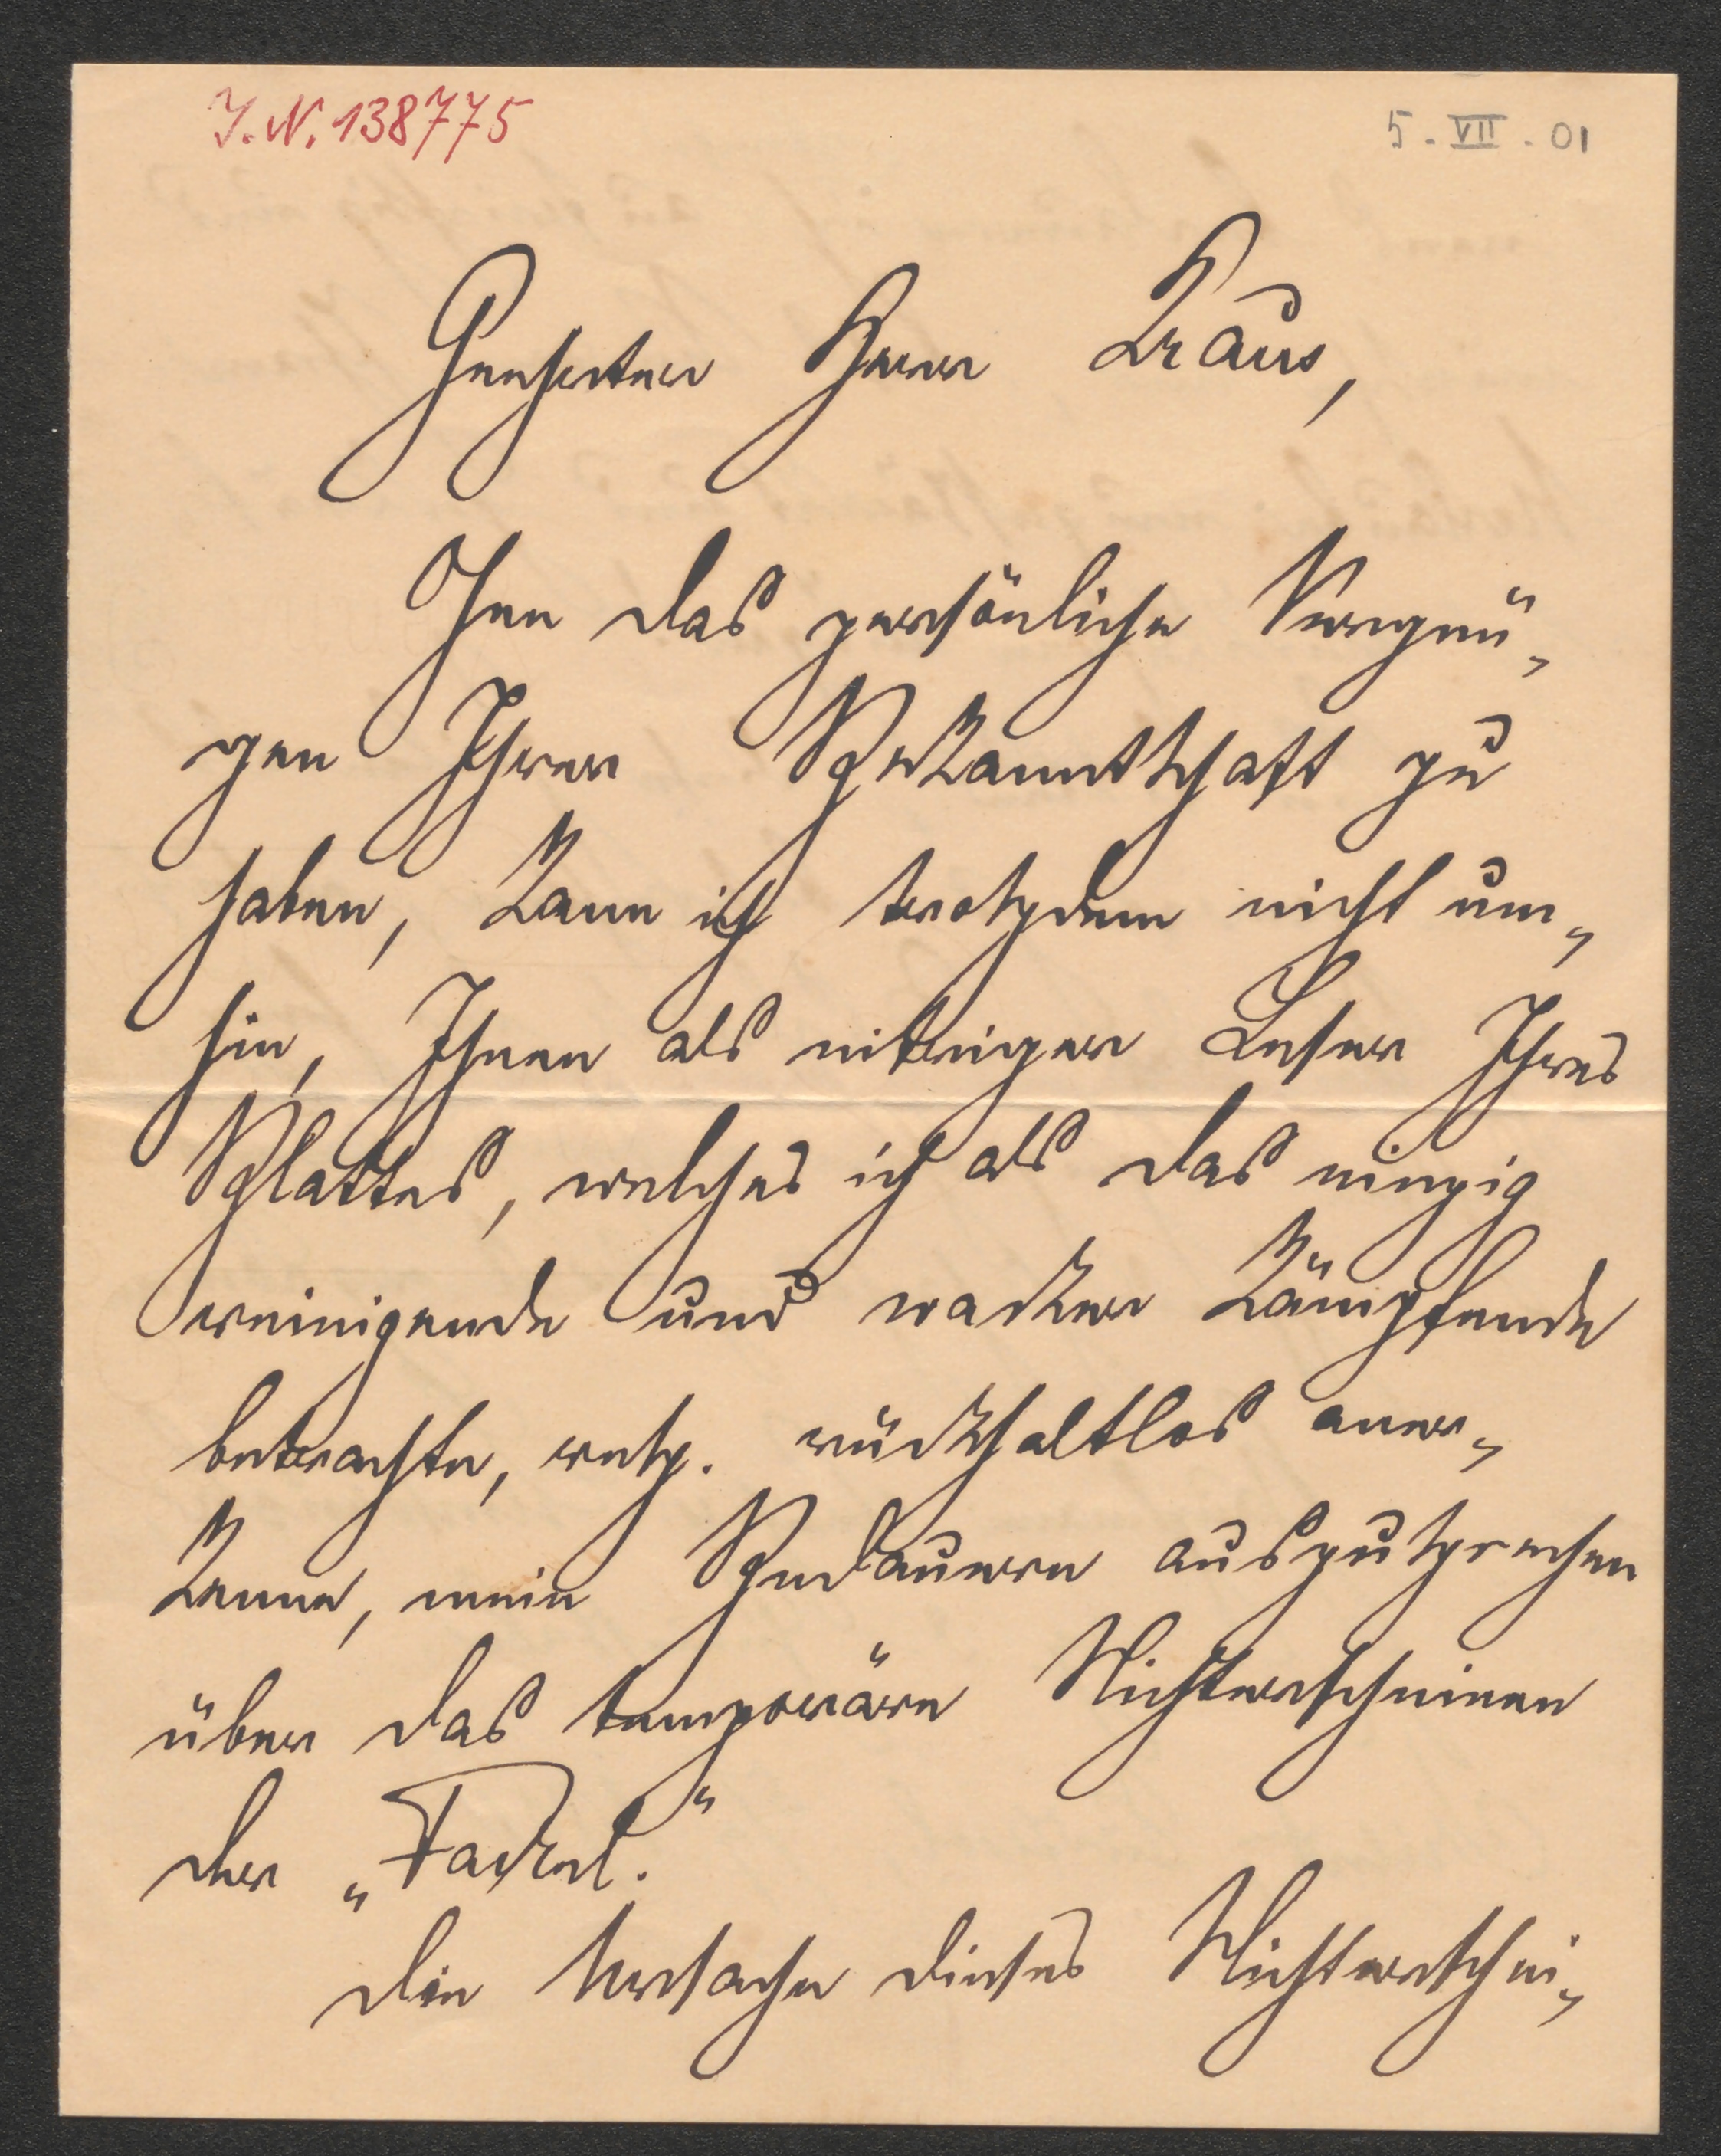 J.N. 138775
5. VII. 01
Geehrter Herr Kraus,
Ohne das persönliche Vergnü-
gen Ihrer Bekanntschaft zu
haben, kann ich trotzdem nicht um-
hin, Ihnen als eifriger Leser Ihres
Blattes, welches ich als das einzig
reinigende und wacker kämpfende
betrachte, resp. rückhaltlos aner-
kenne, mein Bedauern auszusprechen
über das temporäre Nichterscheinen
der „Fackel."
Die Ursache dieses Nichterschei-